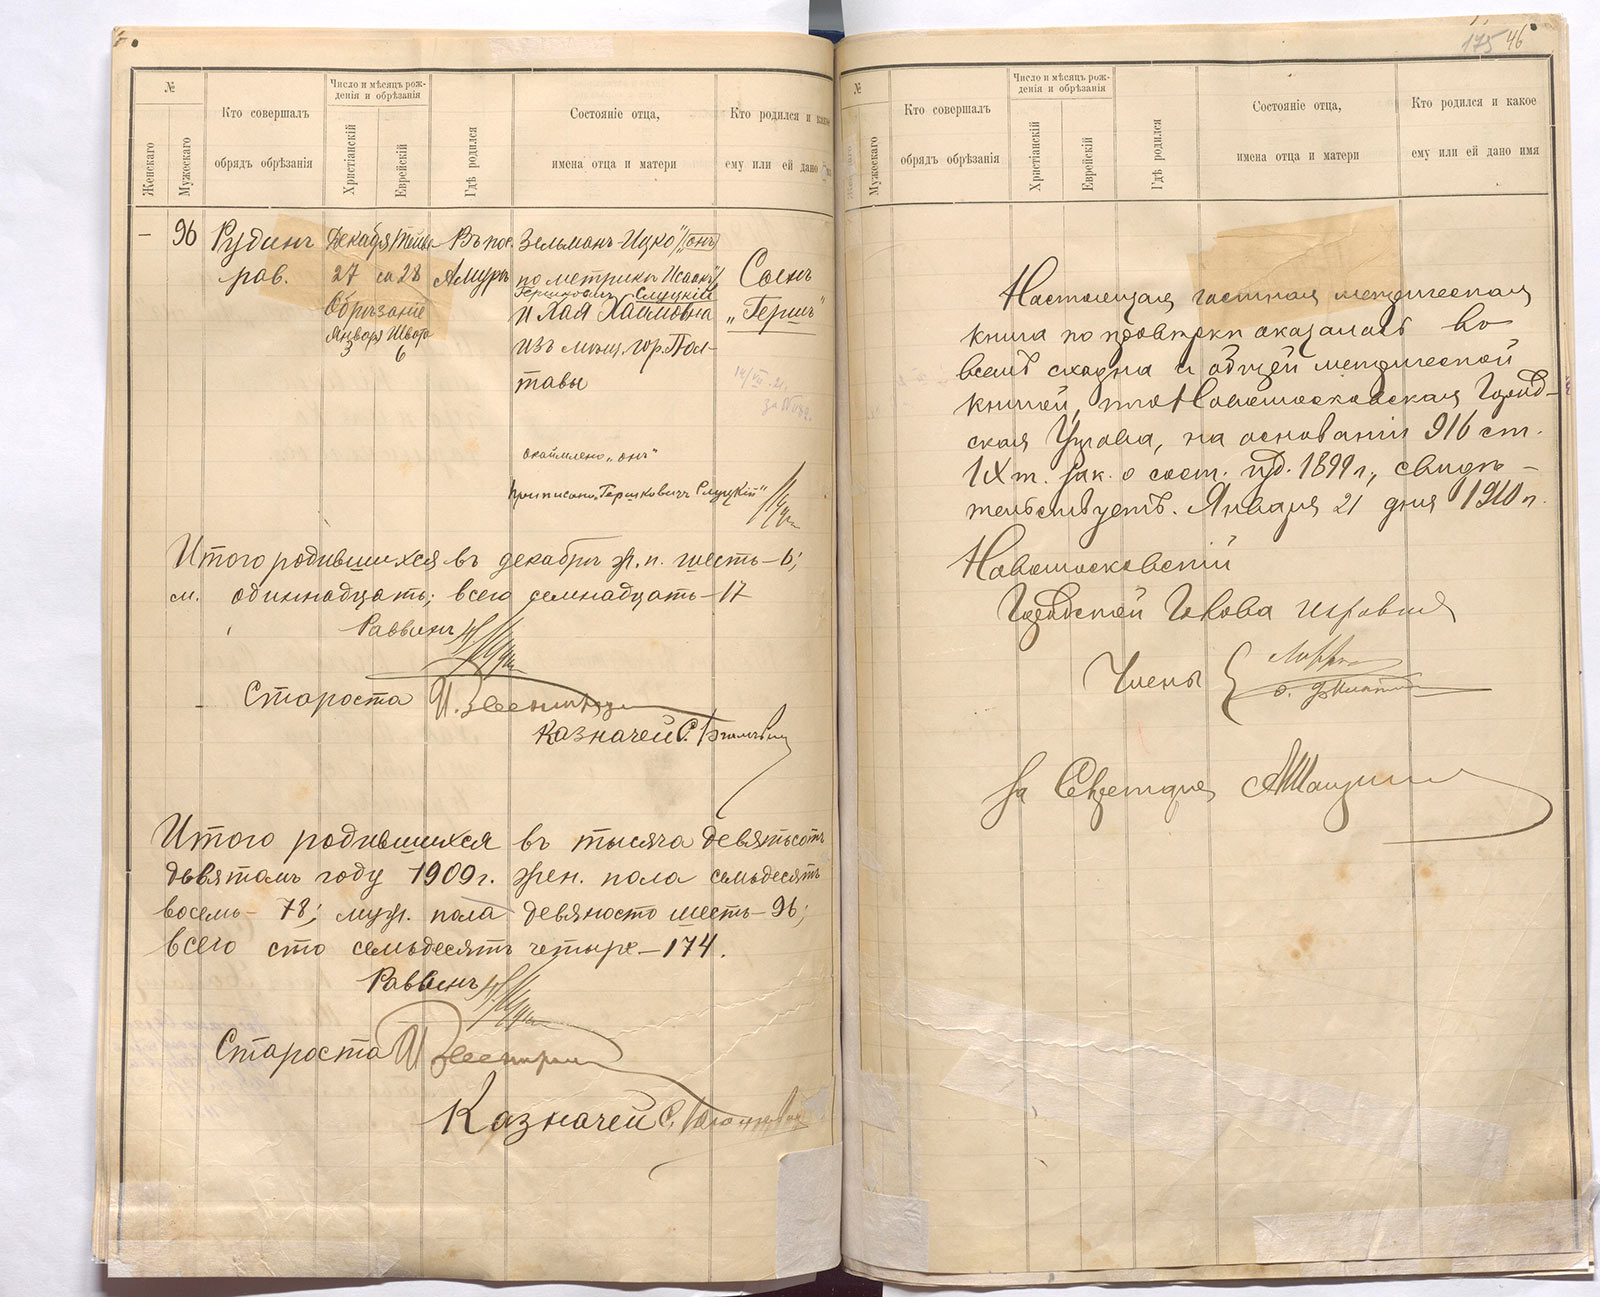 №
Женскаго
Мужескаго
Кто совершалъ
обрядъ обрѣзанія
Число и мѣсяцъ рож-
денія и обрѣзанія
Христіанскій
Еврейскій
Гдѣ родился
Состояніе отца,
имена отца и матери
Кто родился и какое
ему или ей дано
– 96
Рудинъ
рав.
Декабря
27
Обрѣзаніе
Января
3
28
6
Въ пос.
Амуръ
Зельманъ Ицко "/онъ
по метрикѣ Исаакъ/
Гершковичъ Слуцкій
и Хая Хаимовна
изъ мѣщ. гор. Пол-
тавы
Сынъ
„Гершъ"
окаймлено „онъ"
приписано „Гершковичъ Слуцкій"
Итого родившихся въ декабрѣ ж. п. шесть – 6;
м. одиннадцать; всего семнадцать – 17
Раввинъ
Староста
Казначей С.
Итого родившихся въ тысяча девятьсотъ
девятомъ году 1909 г. жен. пола семьдесятъ
восемь – 78; муж. пола девяносто шесть – 96;
всего сто семьдесятъ четыре – 174.
Раввинъ
Староста
Казначей С.
175 46
№
Мужескаго
Кто совершалъ
обрядъ обрѣзанія
Число и мѣсяцъ рож-
денія и обрѣзанія
Христіанскій
Еврейскій
Гдѣ родился
Состояніе отца,
имена отца и матери
Кто родился и какое
ему или ей дано имя
Настоящая частная метрическая
книга по провѣркѣ оказалась во
всемъ сходна съ общей метрической
книгой, что Новомосковская Город-
ская Управа, на основаніи 916 ст.
IX т. зак. о сост. изд. 1899 г., свидѣ-
тельствуетъ. Января 21 дня 1910 г.
Новомосковскій
Городской Голова
Члены
за Секретаря